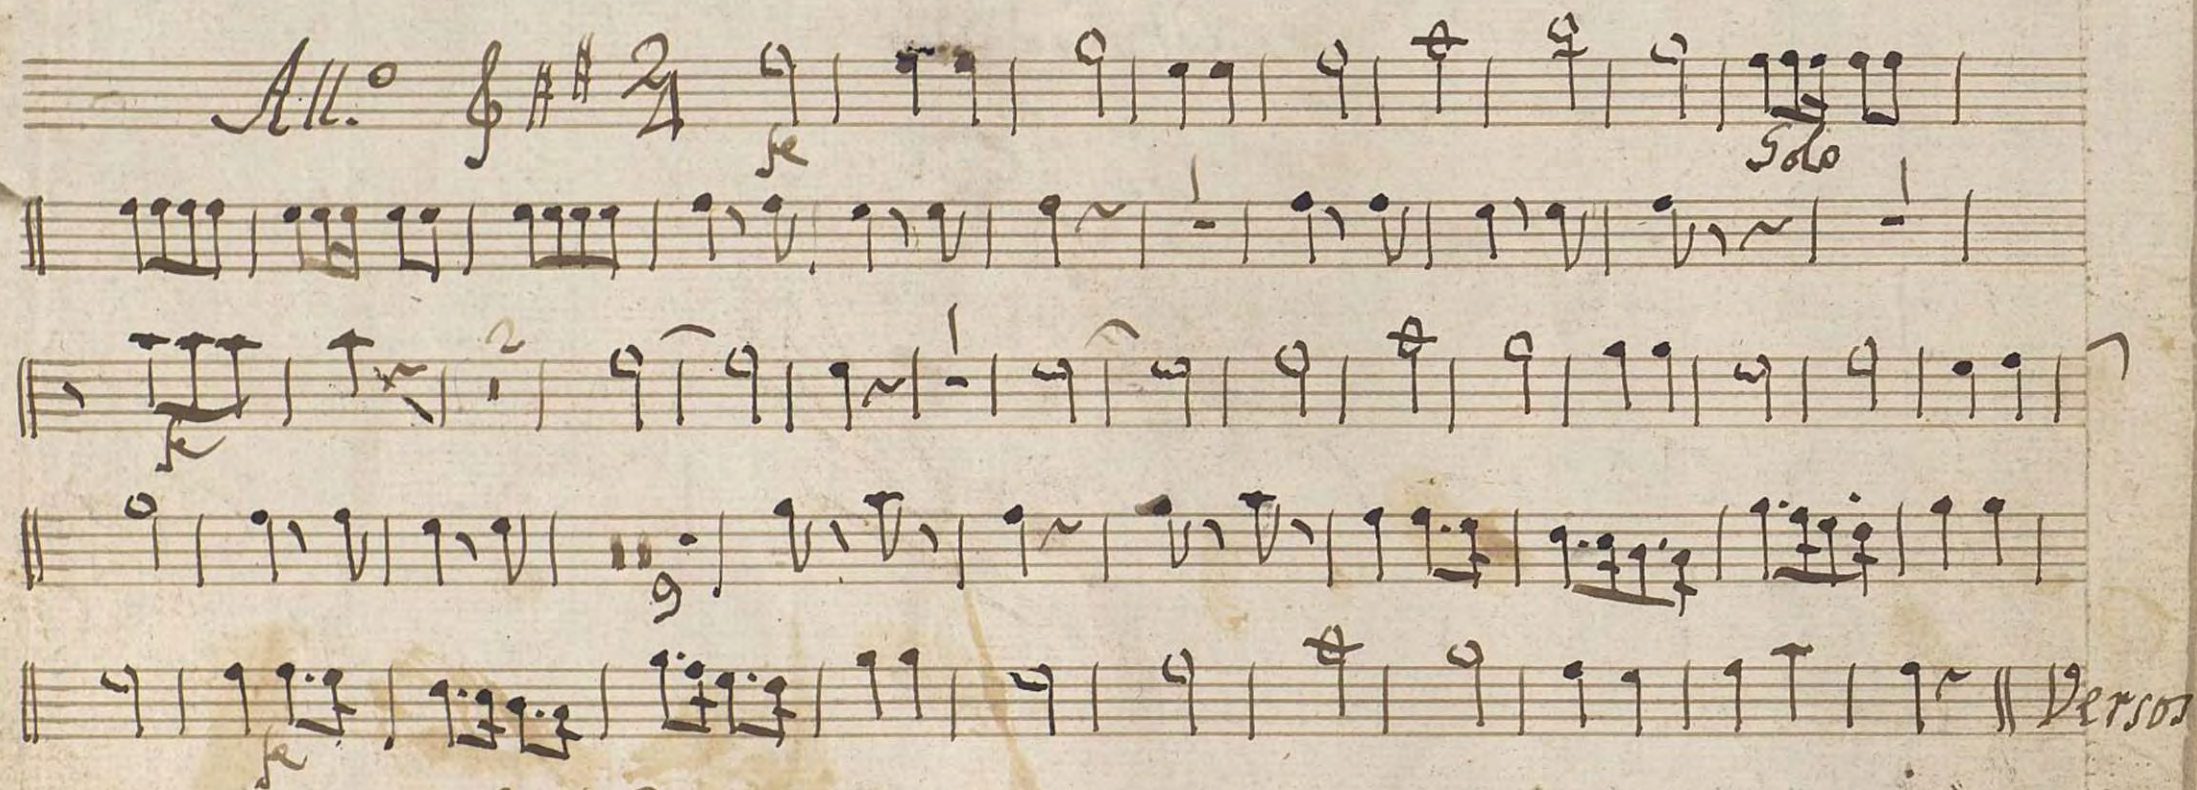 All.o 2/4
fe
Solo
1 1
2 1
fe
9
fe
Versos